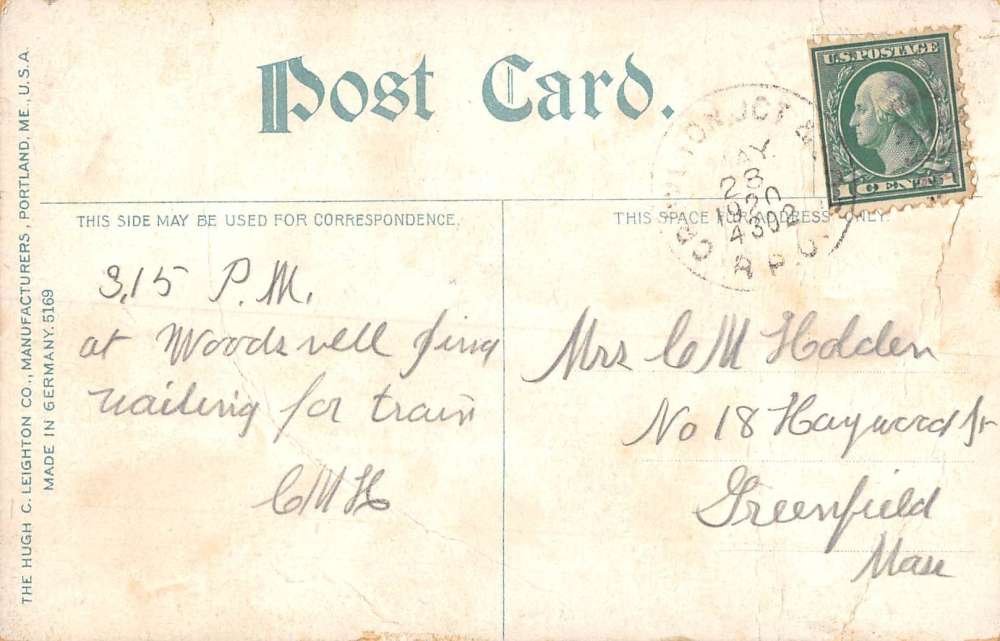 Post Card.
U.S. POSTAGE
1 CENT 1
MAY
28
1920
4302
R.P.O.
THIS SIDE MAY BE USED FOR CORRESPONDENCE.
THIS SPACE FOR ADDRESS ONLY.
3,15 P.M.
at Woodsvell
waiting for train
CMH
Mrs CM Holden
No 18 Hayward St
Greenfield
Mass
THE HUGH C. LEIGHTON CO., MANUFACTURERS, PORTLAND, ME., U.S.A.
MADE IN GERMANY. 5169